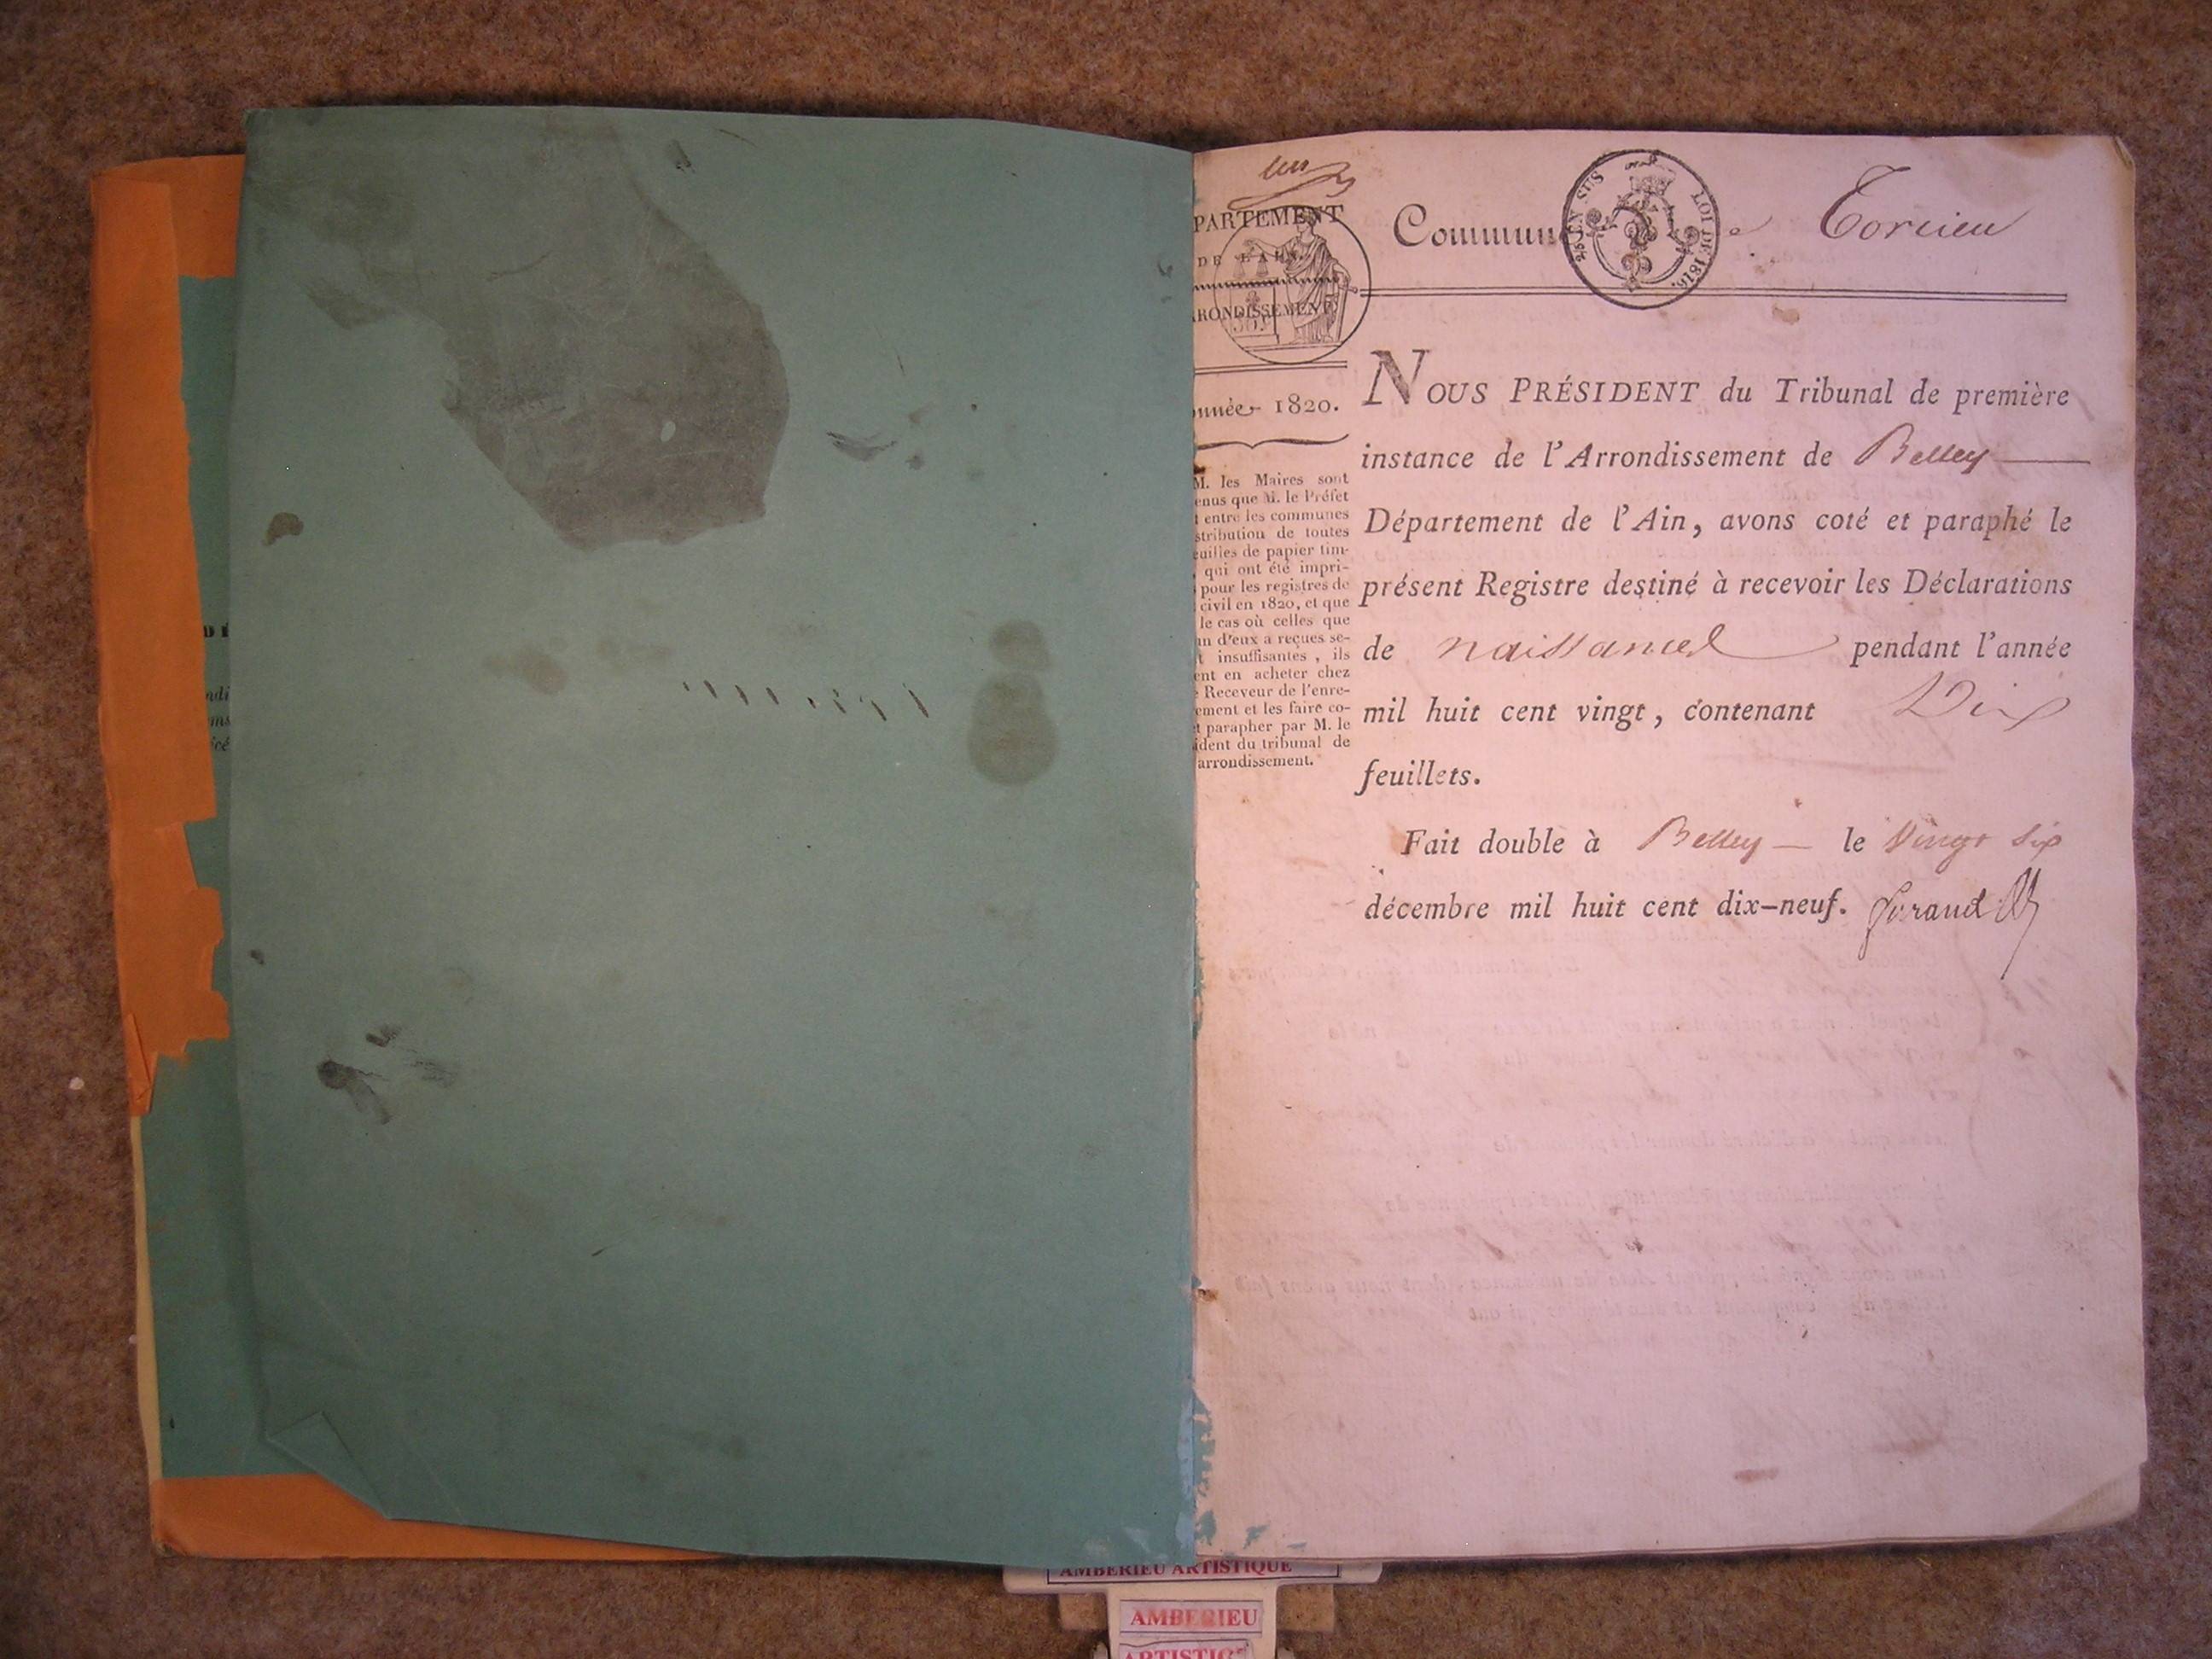 PARTEMENT
DE L'AIN.
RONDISSEMENT
Commune
EN SUS
LOI DE 1816.
Torcieu
nnée 1820.
M. les Maires sont
enus que M. le Préfet
t entre les communes
stribution de toutes
euilles de papier tim-
, qui ont été impri-
pour les registres de
civil en 1820, et que
le cas où celles que
un d'eux a reçues se-
t insuffisantes, ils
ent en acheter chez
e Receveur de l'enre-
ement et les faire co-
et parapher par M. le
ident du tribunal de
arrondissement.
NOUS PRÉSIDENT du Tribunal de première
instance de l'Arrondissement de Belley
Département de l'Ain, avons coté et paraphé le
présent Registre destiné à recevoir les Déclarations
de naissances pendant l'année
mil huit cent vingt, contenant Dix
feuillets.
Fait double à Belley le vingt six
décembre mil huit cent dix-neuf.
AMBERIEU ARTISTIQUE
AMBERIEU